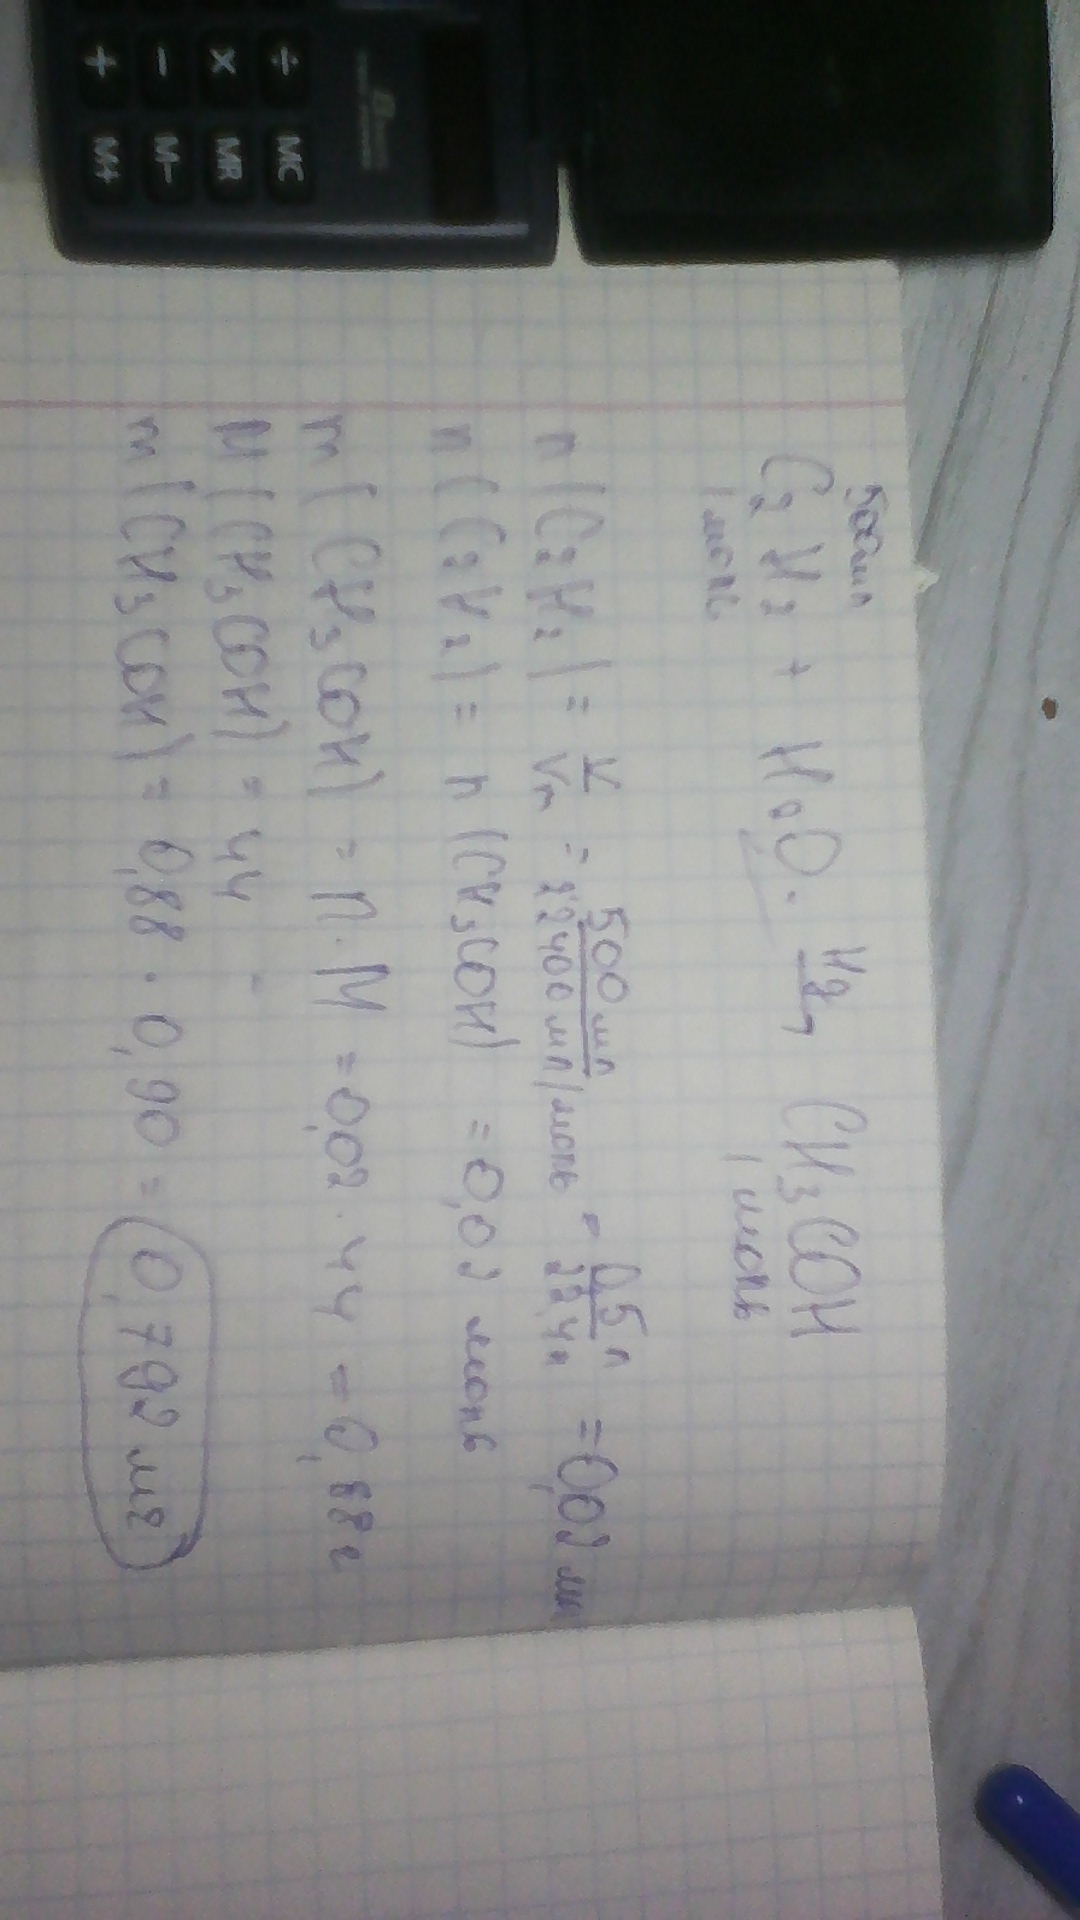 ÷ MC
× MR
− M−
+ M+
500мл
C₂H₂ + H₂O. Hg→ CH₃COH
1 моль 1 моль
n(C₂H₂) = V/Vm = 500мл/22400мл/моль = 0,5л/22,4л = 0,02 мл
n(C₂H₂) = n(CH₃COH) = 0,02 моль
m(CH₃COH) = n·M = 0,02·44 = 0,88г
M(CH₃COH) = 44
m(CH₃COH) = 0,88·0,90 = 0,792 мг